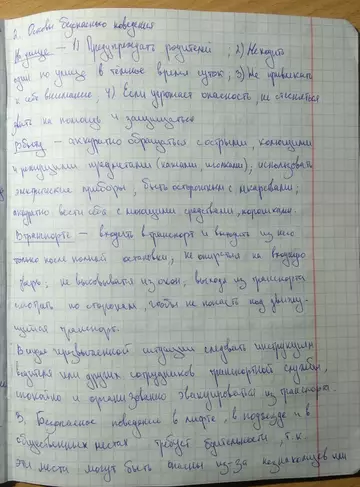 2. Основы безопасного поведения
На улице – 1) Предупреждать родителей, 2) Не ходить
одни по улице в тёмное время суток, 3) Не привлекать
к себе внимание, 4) Если угрожает опасность, не стесняться
звать на помощь и защищаться
В быту – аккуратно обращаться с острыми, колющими
и режущими предметами (ножами, иголками), использовать
электрические приборы, быть осторожным с лекарствами,
аккуратно вести себя с моющими средствами, порошками.
В транспорте – входить в транспорт и выходить из него
только после полной остановки, не опираться на входную
дверь, не высовываться из окон, выходя из транспорта
смотреть по сторонам, чтобы не попасть под движу-
щийся транспорт.
В иной чрезвычайной ситуации следовать инструкциям
водителя или других сотрудников транспортной службы,
спокойно и организованно эвакуироваться из транспорта.
3. Безопасное поведение в лифте, в подъезде и в
общественных местах требует бдительности, т.к.
эти места могут быть опасны из-за незнакомцев или